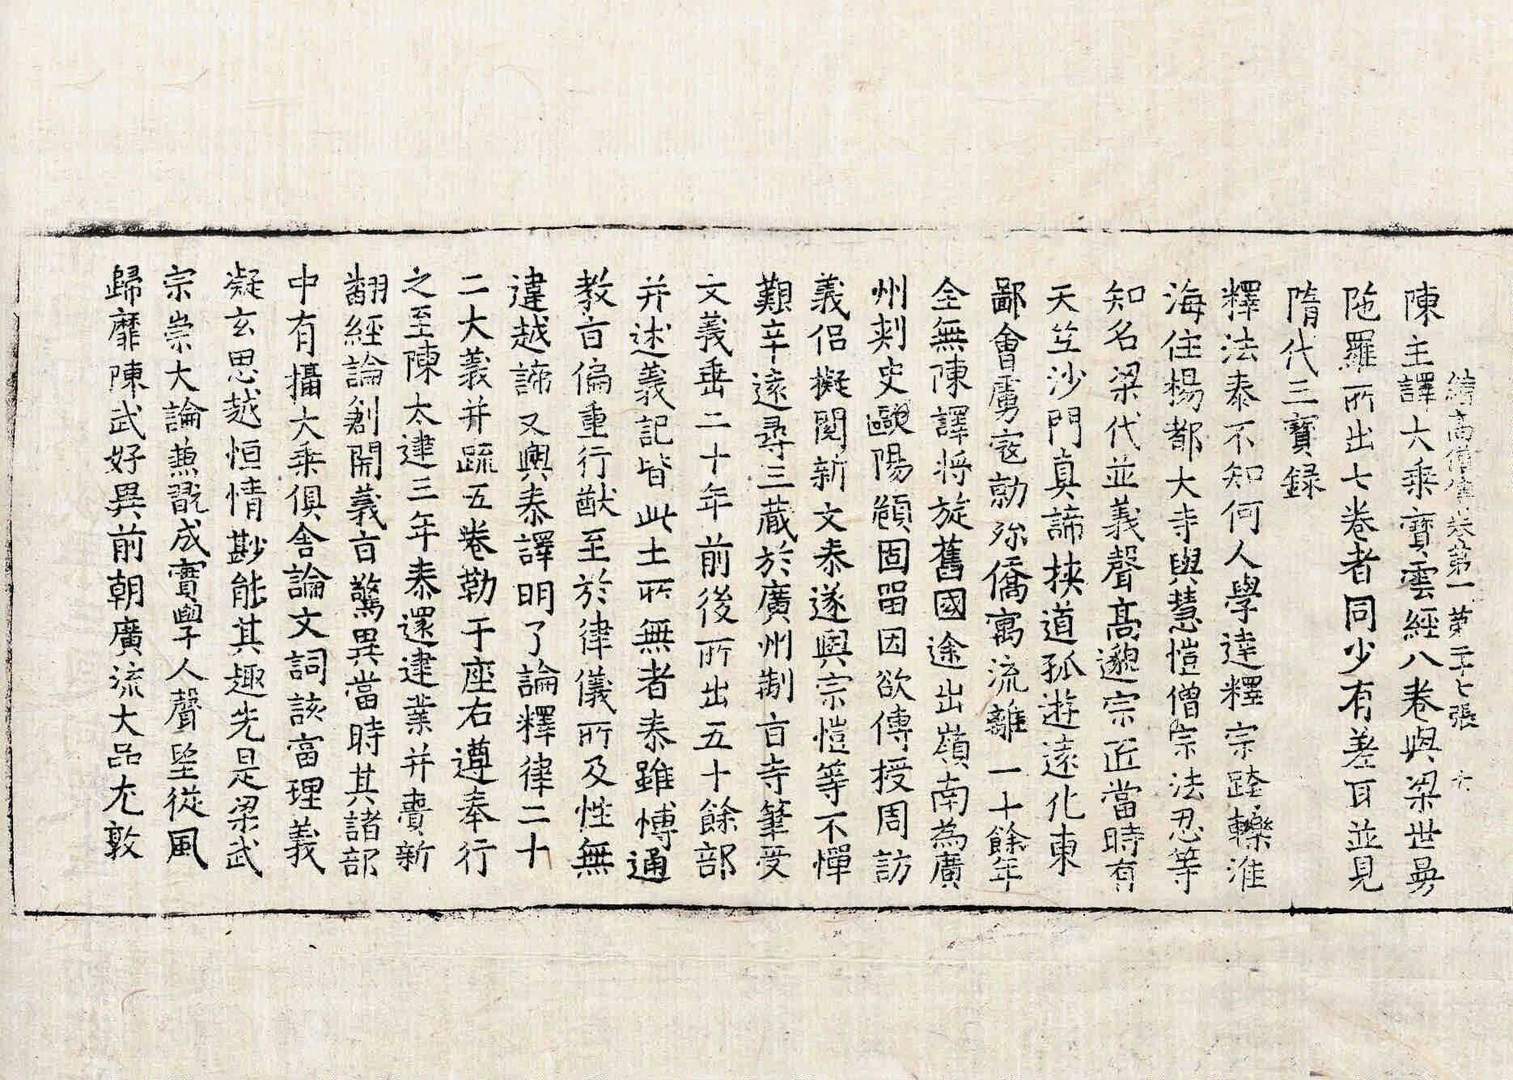 續高僧傳卷第一 第二十七張 六
陳主譯大乘寶雲經八卷與梁世曼
陁羅所出七卷者同少有差耳並見
隋代三寶録
釋法泰不知何人學達釋宗跨轢淮
海住楊都大寺與慧愷僧宗法忍等
知名梁代並義聲髙邈宗匠當時有
天竺沙門真諦挾道孤遊遠化東
鄙會虜寇勍殄僑寓流離一十餘年
全無陳譯将旋舊國途出嶺南為廣
州刺史歐陽頠固留因欲傳授周訪
義侣擬閱新文泰遂與宗愷等不憚
艱辛遠尋三藏於廣州制旨寺筆受
文義垂二十年前後所出五十餘部
并述義記皆此土所無者泰雖博通
教旨偏重行猷至於律儀所及性無
違越諦又與泰譯明了論釋律二十
二大義并疏五卷勒于座右遵奉行
之至陳太建三年泰還建業并賷新
翻經論創開義旨驚異當時其諸部
中有攝大乘俱舍論文詞該富理義
凝玄思越恒情尠能其趣先是梁武
宗崇大論兼翫成實學人聲望從風
歸靡陳武好異前朝廣流大品尤敦